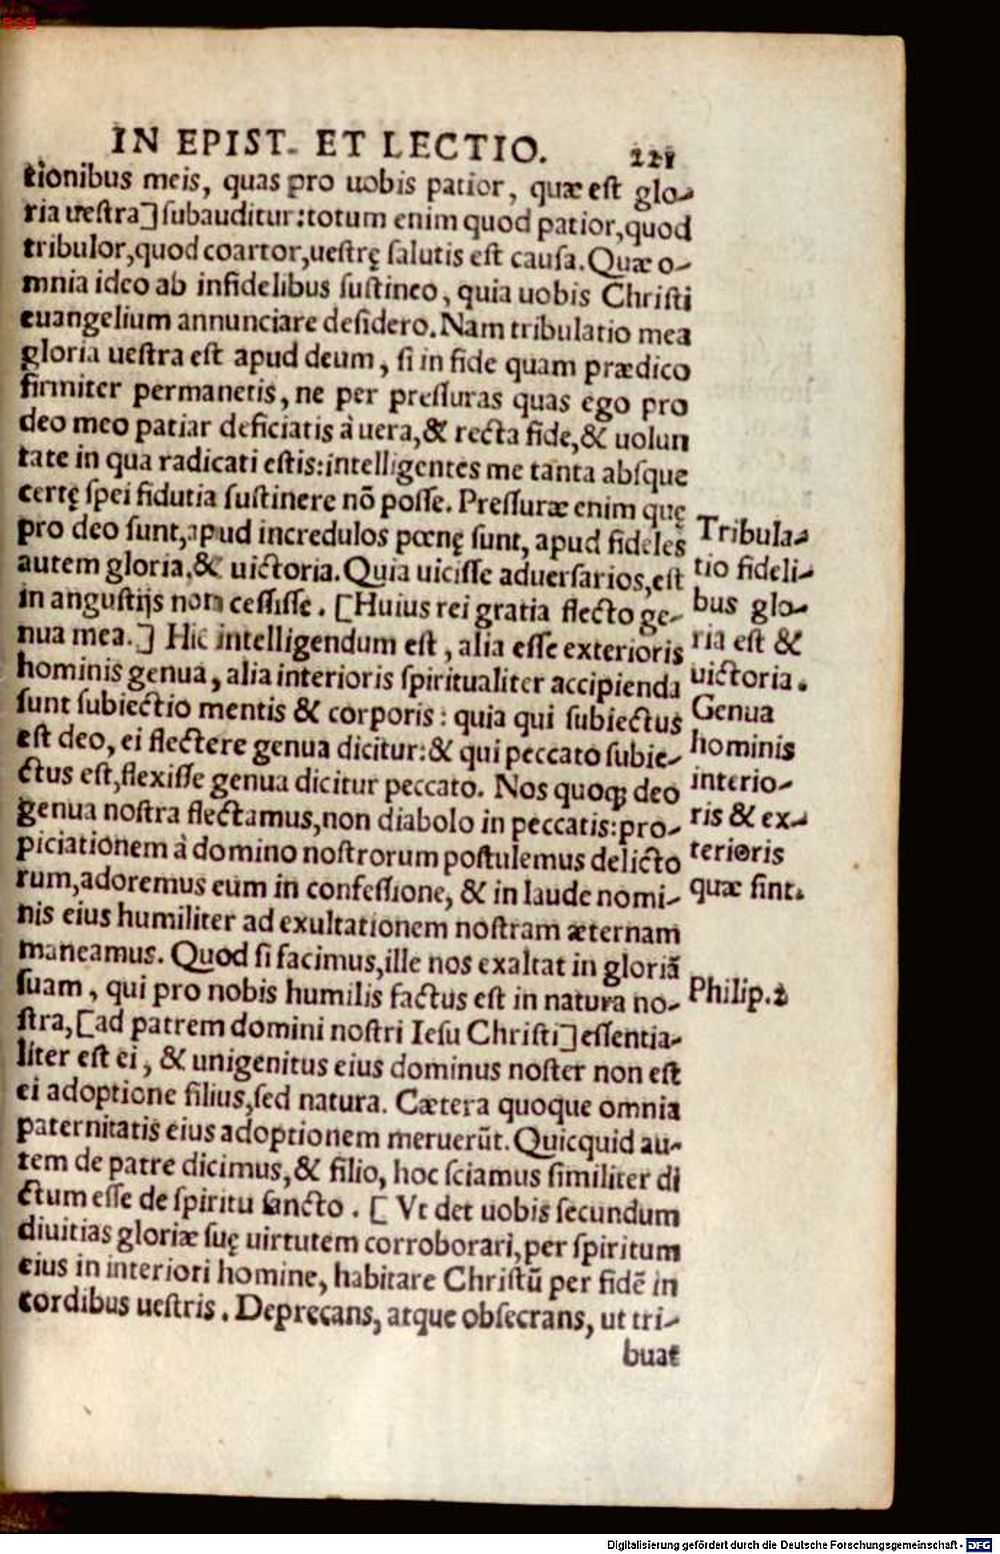 IN EPIST. ET LECTIO. 221
tionibus meis, quas pro uobis patior, quæ est glo-
ria uestra] subauditur: totum enim quod patior, quod
tribulor, quod coartor, uestrę salutis est causa. Quæ o-
mnia ideo ab infidelibus sustineo, quia uobis Christi
euangelium annunciare desidero. Nam tribulatio mea
gloria uestra est apud deum, si in fide quam prædico
firmiter permanetis, ne per pressuras quas ego pro
deo meo patiar deficiatis à uera, & recta fide, & uolun
tate in qua radicati estis: intelligentes me tanta absque
certę spei fidutia sustinere nõ posse. Pressuræ enim quę
pro deo sunt, apud incredulos pœnę sunt, apud fideles
autem gloria, & uictoria. Quia uicisse aduersarios, est
in angustijs non cessisse. [Huius rei gratia flecto ge-
nua mea.] Hic intelligendum est, alia esse exterioris
hominis genua, alia interioris spiritualiter accipienda
sunt subiectio mentis & corporis: quia qui subiectus
est deo, ei flectere genua dicitur: & qui peccato subie-
ctus est, flexisse genua dicitur peccato. Nos quoqꝫ deo
genua nostra flectamus, non diabolo in peccatis: pro-
piciationem à domino nostrorum postulemus delicto
rum, adoremus eum in confessione, & in laude nomi-
nis eius humiliter ad exultationem nostram æternam
maneamus. Quod si facimus, ille nos exaltat in gloriã
suam, qui pro nobis humilis factus est in natura no-
stra, [ad patrem domini nostri Iesu Christi] essentia-
liter est ei, & unigenitus eius dominus noster non est
ei adoptione filius, sed natura. Cætera quoque omnia
paternitatis eius adoptionem meruerũt. Quicquid au-
tem de patre dicimus, & filio, hoc sciamus similiter di
ctum esse de spiritu sancto. [ Vt det uobis secundum
diuitias gloriæ suę uirtutem corroborari, per spiritum
eius in interiori homine, habitare Christũ per fidẽ in
cordibus uestris. Deprecans, atque obsecrans, ut tri-
buat
Tribula-
tio fideli-
bus glo-
ria est &
uictoria.
Genua
hominis
interio-
ris & ex-
terioris
quæ sint.
Philip. 2
Digitalisierung gefördert durch die Deutsche Forschungsgemeinschaft - DFG